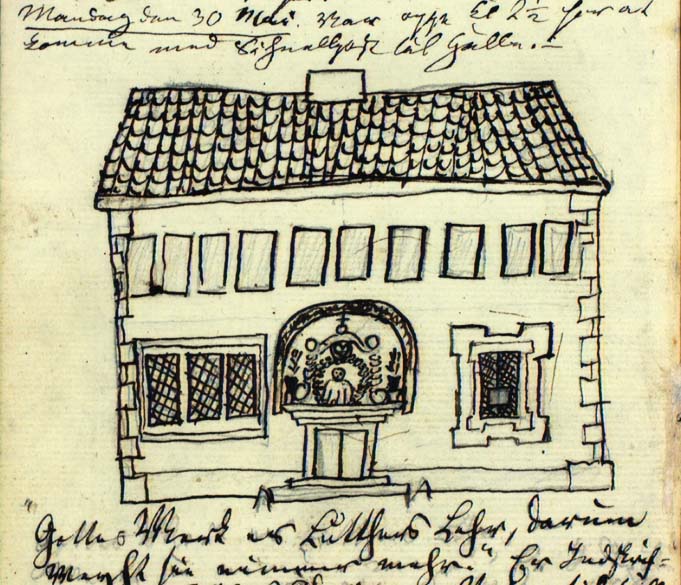 Mandag den 30 Mai. Var oppe Kl 2½ for at
komme med Schnellpost til Halle. –
"Gottes Werk es Lutthers Lehr, darum
vergeht sie nimmer mehr." Er Indskrif-